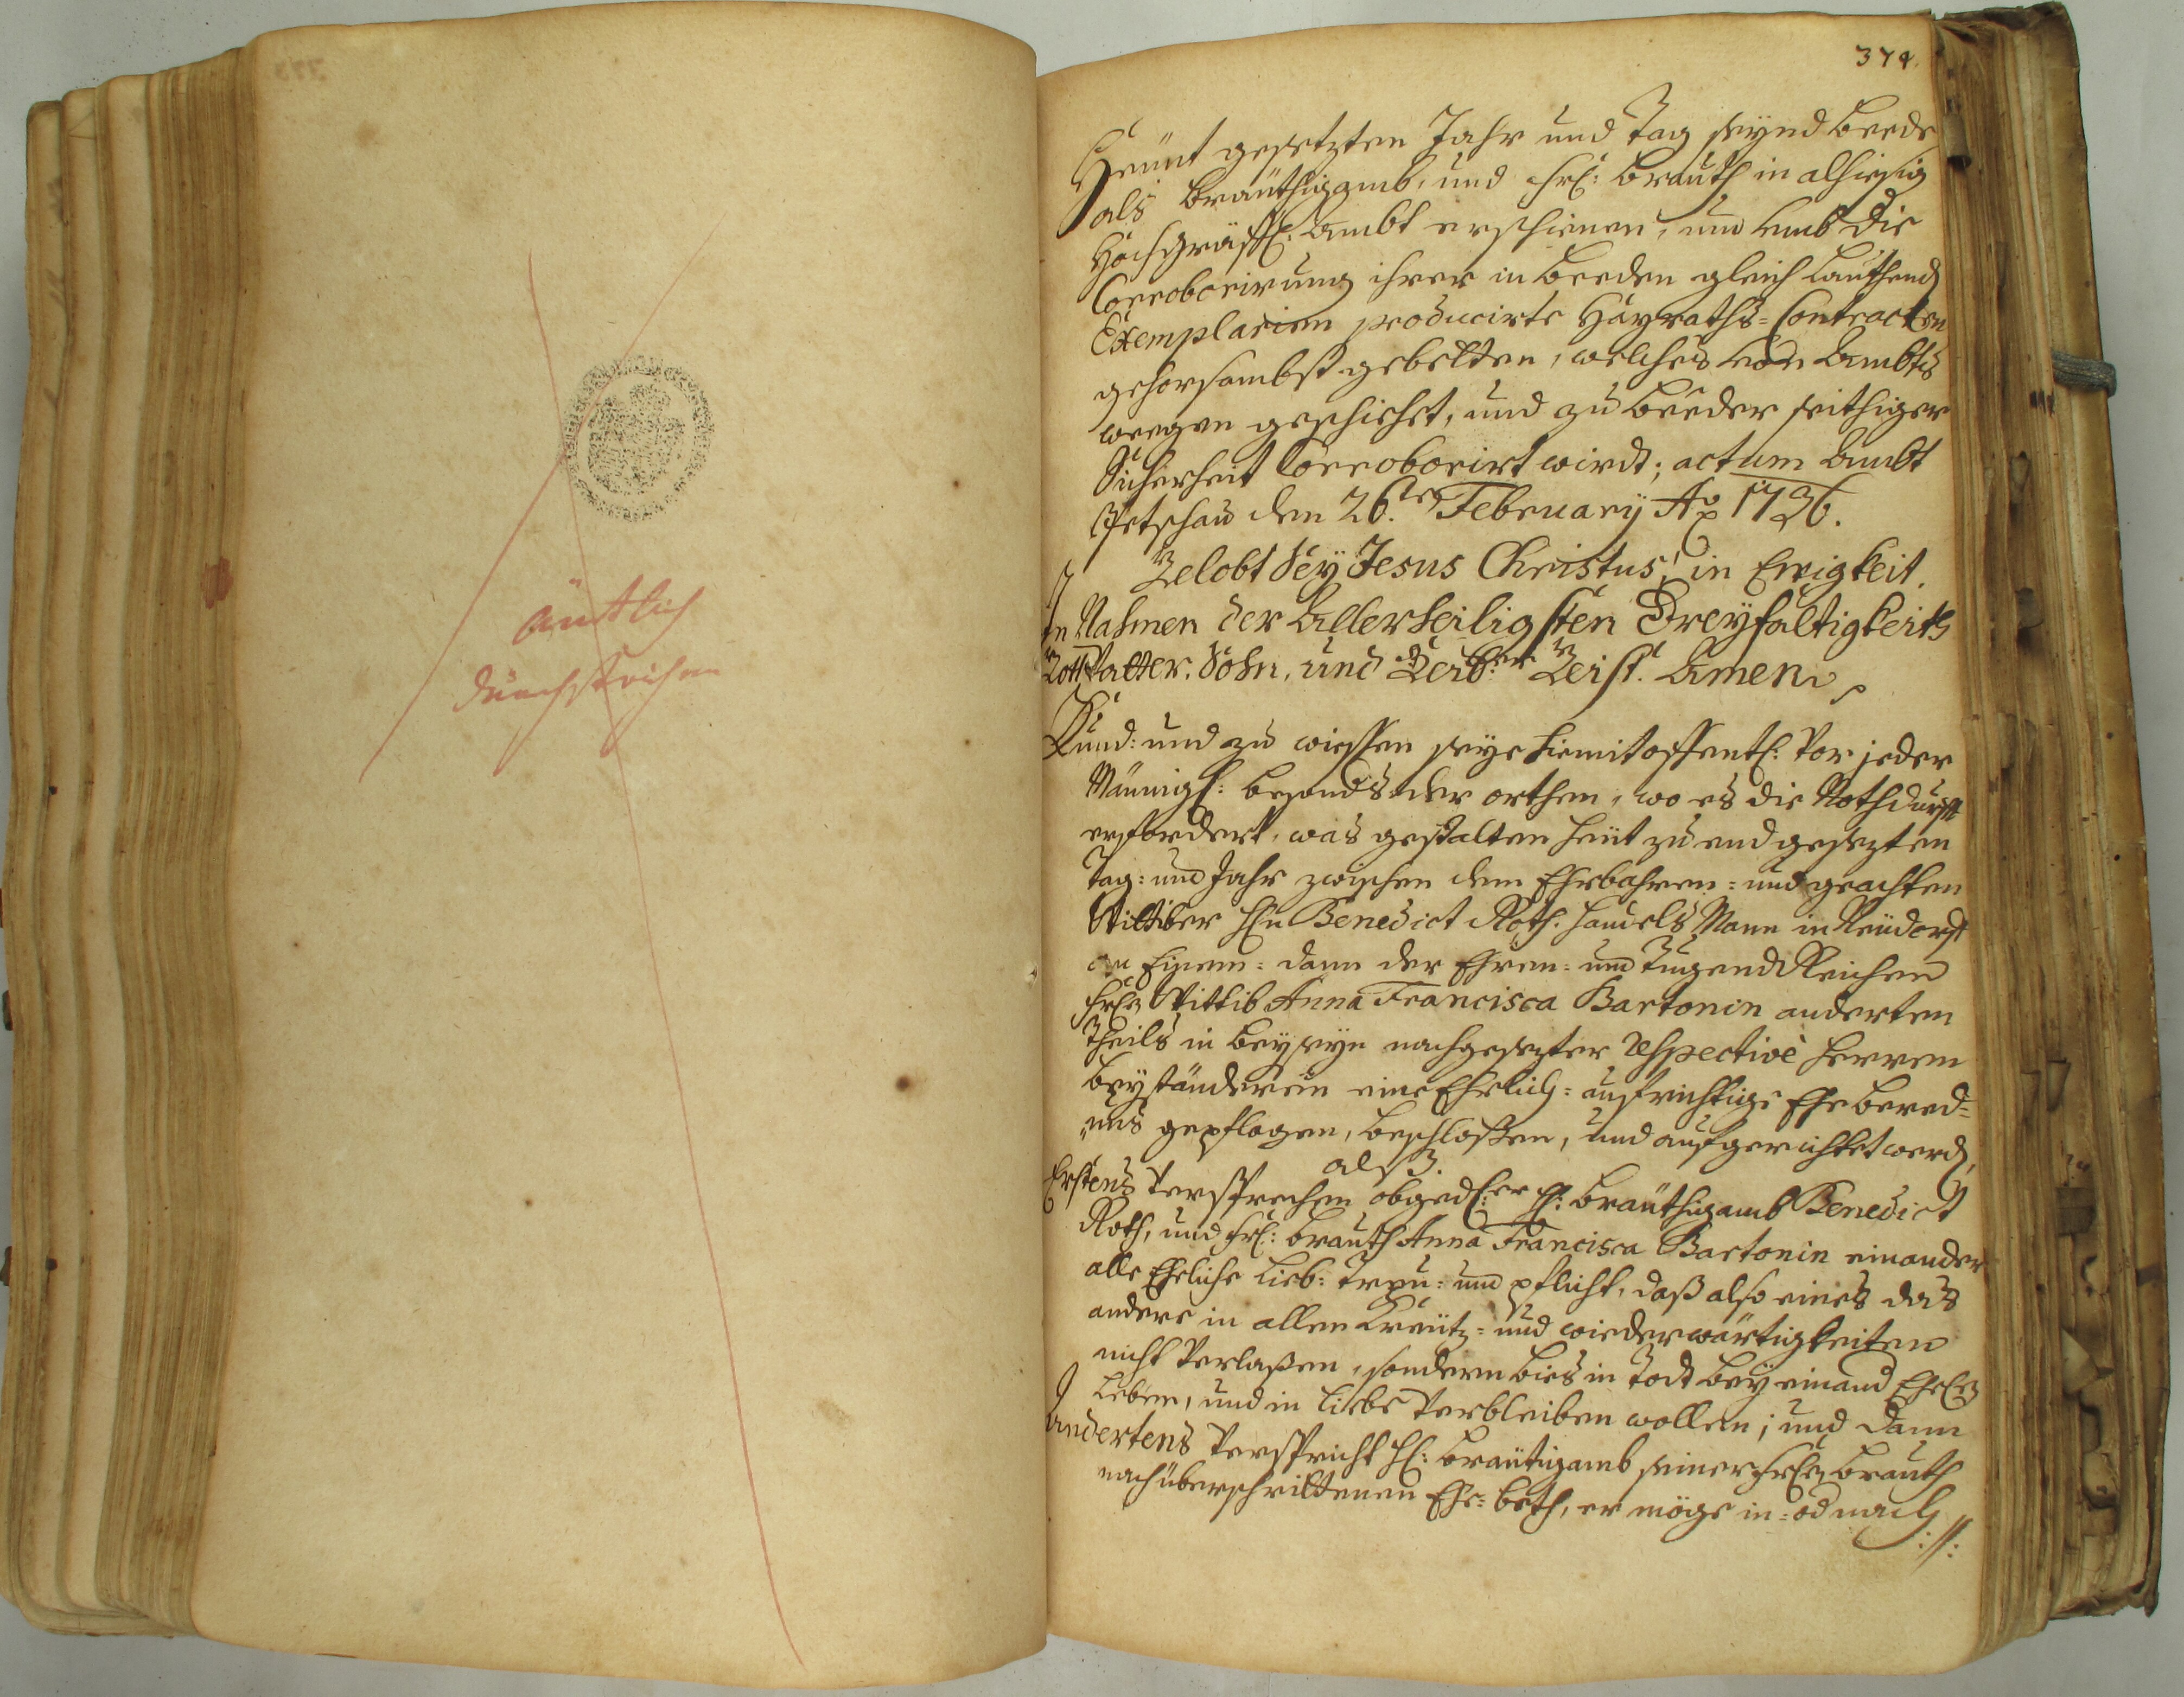 ämtlich
durchstrichen
374.
Heünt gesetzten Jahr und Tag seynd beede
als Bräuthigamb, und Frl: Brauth in alhiesig
Hochgräffl: Ambt erschienen, und umb die
Corroborirung ihrer in beeden gleich lauthend
Exemplarien producirte Heyraths=Contracten
gehorsambst gebetten, welches von Ambts
weegen geschiehet, und zu beeder seithiger
Sicherheit Corroborirt wirdt; actum Ambt
Petschau den 26.ten February Ao 1736.
Gelobt Sey Jesus Christus, in Ewigkeit.
In Nahmen der Allerheiligsten Dreyfaltigkeith
Gott Vatter, Sohn, und Heil:er Geist. Amen
Kund: und zu wissen seye hiemit offentl: vor jeder
Männigl: besonders der orthen, wo es die Nothdurfft
erfordert, was gestalten heut zu end gesezten
Tag: und Jahr zwischen dem Ehrbahren= und geachten
Wittiber Hn Benedict Roth. Handels Mann in Neudorff
an Einem= dann der Ehren= und Tugend Reichen
Frln Wittib Anna Francisca Bartonin anderten
Theils in Beyseyn nachgesezter respective Herren
Beyständeren eine Ehrlich= aufrichtige Ehe bered=
nus gepflogen, beschloßen, und aufgerichtet werd,
alß.
Erstens versprechen obgedl:er H: Bräuthigamb Benedict
Roth, und Frl: Brauth Anna Francisca Bartonin einander
alle Eheliche Lieb= Treu= und pflicht, daß also eines das
andere in allen Kreütz= und wiederwärtigkeiten
nicht verlaßen, sondern bies in Todt bey einand Ehel:
Leben, und in Liebe verbleiben wollen; und dann
Andertens verspricht H: Bräutigamb seiner Frln Brauth
nach überschrittenen Ehe=beth, er möge in= od nach
://: